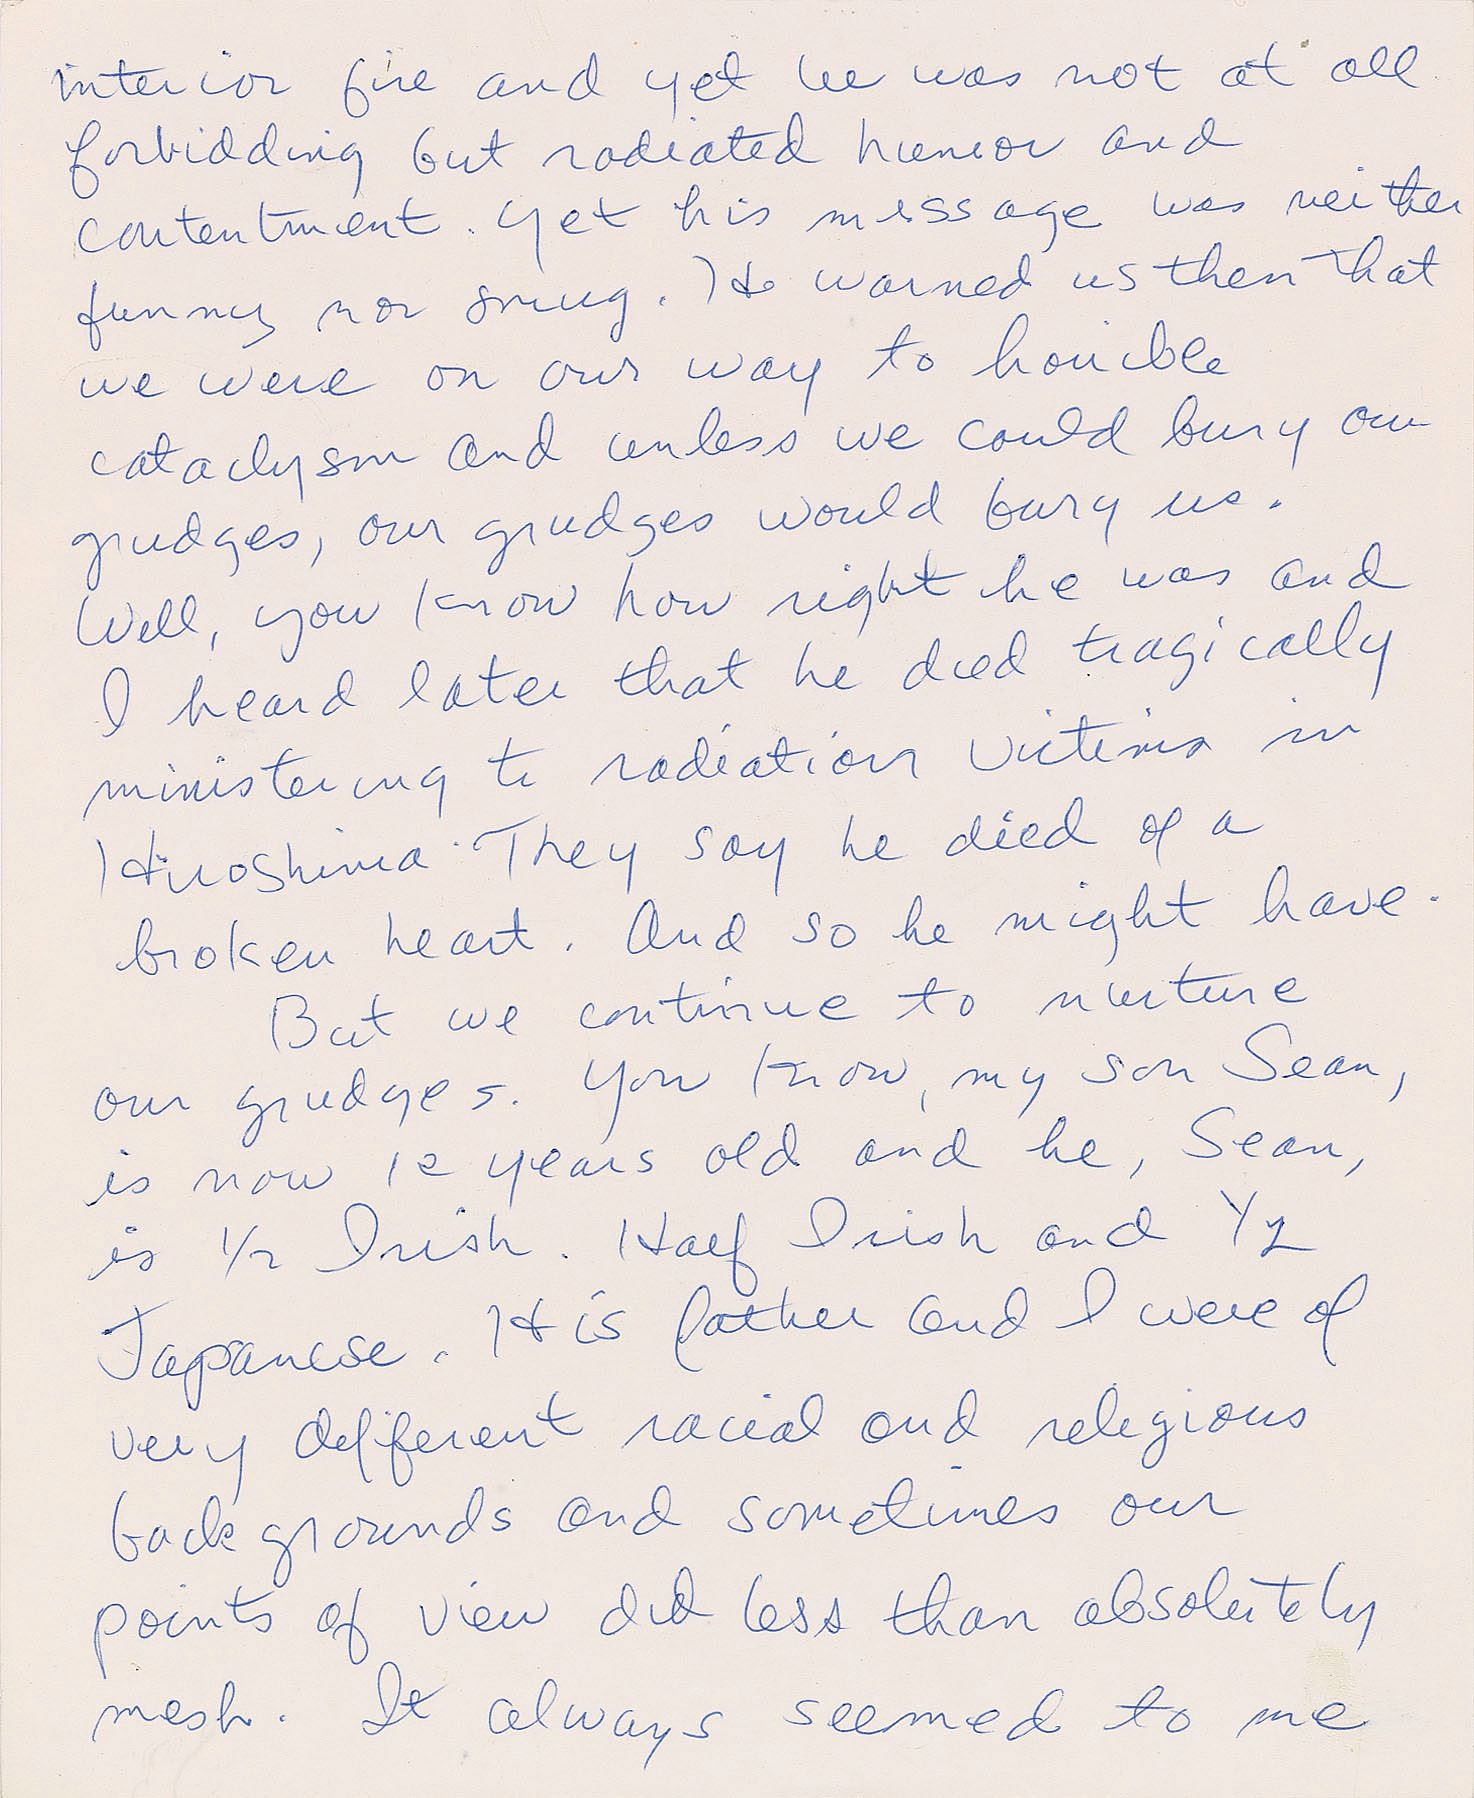 interior fire and yet he was not at all
forbidding but radiated humor and
contentment. Yet his message was neither
funny nor smug. He warned us then that
we were on our way to horrible
cataclysm and unless we could bury our
grudges, our grudges would bury us.
Well, you know how right he was and
I heard later that he died tragically
ministering to radiation victims in
Hiroshima. They say he died of a
broken heart. And so he might have.
But we continue to nurture
our grudges. You know, my son Sean,
is now 12 years old and he, Sean,
is 1/2 Irish. Half Irish and 1/2
Japanese. His father and I were of
very different racial and religious
backgrounds and sometimes our
points of view did less than absolutely
mesh. It always seemed to me